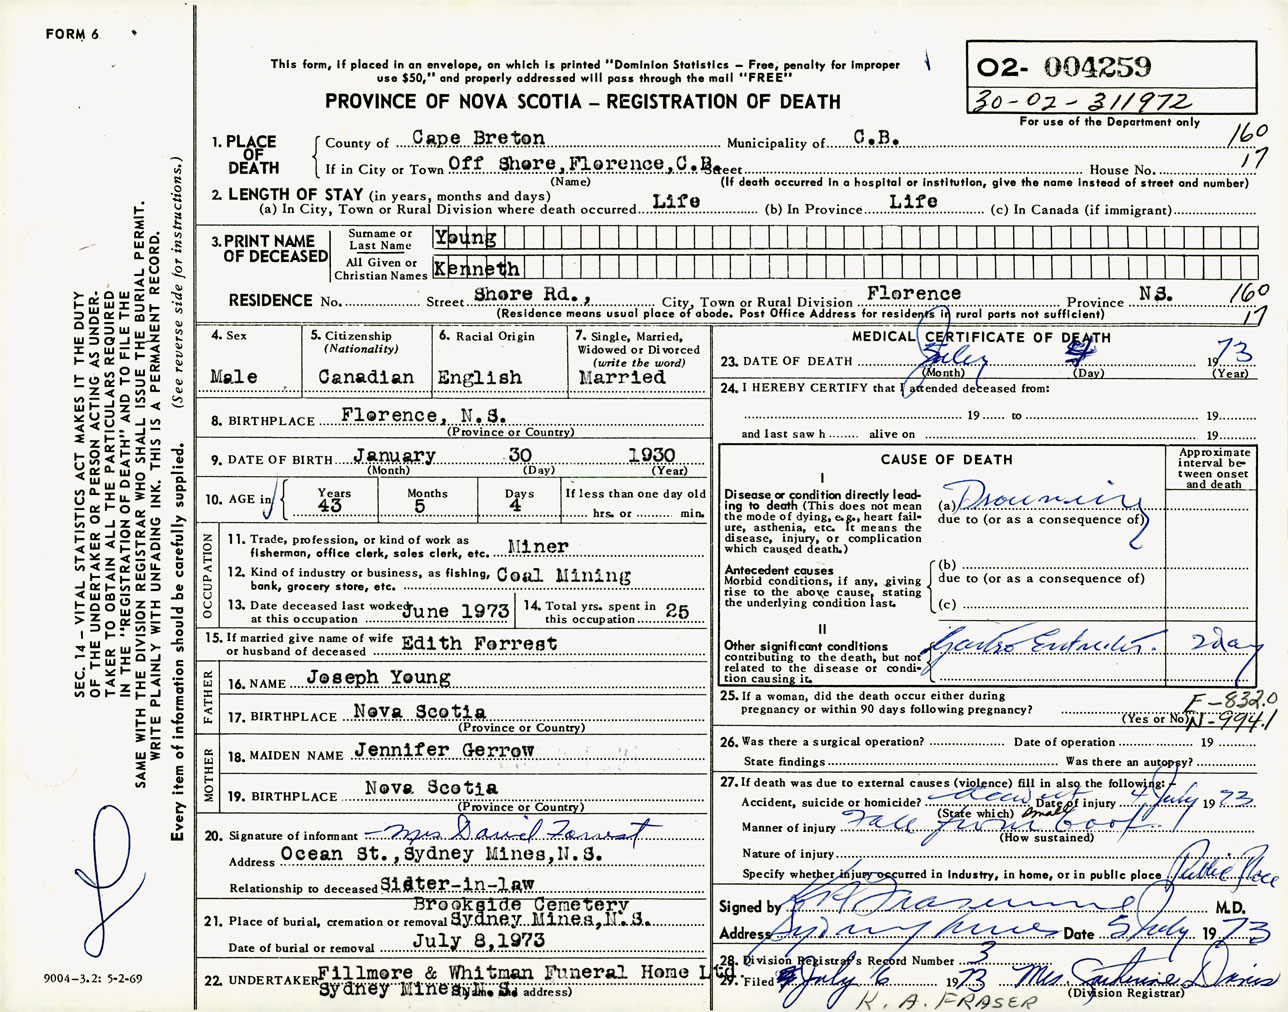 FORM 6
This form, if placed in an envelope, on which is printed "Dominion Statistics – Free, penalty for improper
use $50," and properly addressed will pass through the mail "FREE"
O2- 004259
30-02-311972
For use of the Department only
PROVINCE OF NOVA SCOTIA – REGISTRATION OF DEATH
1. PLACE OF DEATH
County of Cape Breton Municipality of C.B. 160
If in City or Town Off Shore, Florence, C.B. Street House No. 17
(Name) (If death occurred in a hospital or institution, give the name instead of street and number)
2. LENGTH OF STAY (in years, months and days)
(a) In City, Town or Rural Division where death occurred Life (b) In Province Life (c) In Canada (if immigrant)
3. PRINT NAME OF DECEASED
Surname or Last Name Young
All Given or Christian Names Kenneth
RESIDENCE No. Street Shore Rd., City, Town or Rural Division Florence Province NS. 160
(Residence means usual place of abode. Post Office Address for residents in rural parts not sufficient) 17
4. Sex
Male
5. Citizenship
(Nationality)
Canadian
6. Racial Origin
English
7. Single, Married,
Widowed or Divorced
(write the word)
Married
8. BIRTHPLACE Florence, N.S.
(Province or Country)
9. DATE OF BIRTH January 30 1930
(Month) (Day) (Year)
10. AGE in
Years Months Days If less than one day old
43 5 4 hrs. or min.
OCCUPATION
11. Trade, profession, or kind of work as
fisherman, office clerk, sales clerk, etc. Miner
12. Kind of industry or business, as fishing,
bank, grocery store, etc. Coal Mining
13. Date deceased last worked
at this occupation June 1973
14. Total yrs. spent in
this occupation 25
15. If married give name of wife
or husband of deceased Edith Forrest
FATHER
16. NAME Joseph Young
17. BIRTHPLACE Nova Scotia
(Province or Country)
MOTHER
18. MAIDEN NAME Jennifer Gerrow
19. BIRTHPLACE Nova Scotia
(Province or Country)
20. Signature of informant Mrs David Forrest
Address Ocean St., Sydney Mines, N.S.
Relationship to deceased Sister-in-law
Brookside Cemetery
21. Place of burial, cremation or removal Sydney Mines, N.S.
Date of burial or removal July 8, 1973
22. UNDERTAKER Fillmore & Whitman Funeral Home Ltd.
Sydney Mines N.S. address)
MEDICAL CERTIFICATE OF DEATH
23. DATE OF DEATH July 4 1973
(Month) (Day) (Year)
24. I HEREBY CERTIFY that I attended deceased from:
19 to 19
and last saw h alive on 19
CAUSE OF DEATH
Approximate
interval be-
tween onset
and death
I
Disease or condition directly lead-
ing to death (This does not mean
the mode of dying, e.g., heart fail-
ure, asthenia, etc. It means the
disease, injury, or complication
which caused death.)
(a) Drowning
due to (or as a consequence of)
Antecedent causes
Morbid conditions, if any, giving
rise to the above cause, stating
the underlying condition last.
(b)
due to (or as a consequence of)
(c)
II
Other significant conditions
contributing to the death, but not
related to the disease or condi-
tion causing it.
Gastro Enteritis. 2 day
25. If a woman, did the death occur either during
pregnancy or within 90 days following pregnancy?
(Yes or No)
F-832.0
N-994.1
26. Was there a surgical operation? Date of operation 19
State findings Was there an autopsy?
27. If death was due to external causes (violence) fill in also the following:–
Accident, suicide or homicide? Accident Date of injury 4 July 1973
(State which)
Manner of injury Fall from small boat
(How sustained)
Nature of injury
Specify whether injury occurred in industry, in home, or in public place Public Place
Signed by K A Fraser M.D.
Address Sydney Mines Date 5 July 1973
28. Division Registrar's Record Number 3
29. Filed July 6 1973 Mrs. Catherine Davis
(Division Registrar)
K. A. FRASER
SEC. 14 – VITAL STATISTICS ACT MAKES IT THE DUTY
OF THE UNDERTAKER OR PERSON ACTING AS UNDER-
TAKER TO OBTAIN ALL THE PARTICULARS REQUIRED
IN THE "REGISTRATION OF DEATH" AND TO FILE THE
SAME WITH THE DIVISION REGISTRAR WHO SHALL ISSUE THE BURIAL PERMIT.
WRITE PLAINLY WITH UNFADING INK. THIS IS A PERMANENT RECORD.
Every item of information should be carefully supplied. (See reverse side for instructions.)
9004-3.2: 5-2-69